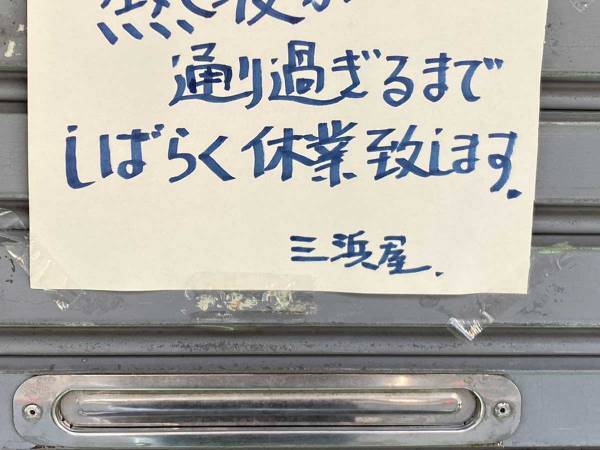 熱波が
通り過ぎるまで
しばらく休業致します.
三浜屋.